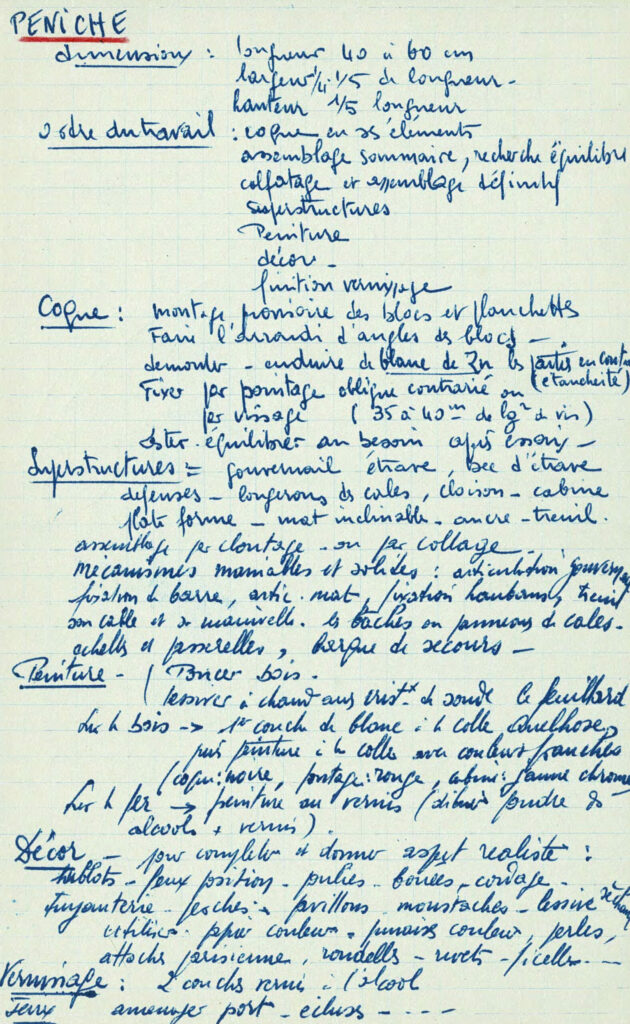 PENICHE
dimensions : longueur 40 à 60 cm
largeur 1/4-1/5 de longueur -
hauteur 1/5 longueur
ordre du travail : coque en ses éléments
assemblage sommaire, recherche équilibre
calfatage et assemblage définitif
superstructures
Peinture
décor -
finition vernissage
Coque : montage provisoire des blocs et planchettes
Faire l'arrondi d'angles des blocs -
demonter - enduire de blanc de Zn les parties en cont
(étanchéité)
Fixer par pointage oblique contrarié ou
par vissage (35 à 40 mm de lgr de vis)
Lester - équilibrer au besoin après essais -
Superstructures = gouvernail étrave, bec d'étrave
defenses - longerons des cales, cloison - cabine
plate forme - mat inclinable - ancre - treuil.
assemblage par cloutage - ou par collage -
mécanismes maniables et solides : articulation gouvern
fixation de barre, artic. mat, fixation haubans, treuil
son cable et sa manivelle. les bâches ou panneaux de cales -
echelles et passerelles, barque de secours -
Peinture - Poncer bois.
lessiver à chaud aux cristx de soude le feuillard
Sur le bois -> 1re couche de blanc à la colle
puis peinture à la colle avec couleurs franches
(coque : noire, pontage : rouge, cabine : jaune chrome
Sur le fer -> peinture au vernis (diluer poudre ds
alcools + vernis).
Décor - pour completer et donner aspect realiste :
hublots - feux position - poulies - bouées - cordage -
tuyauterie - pavillons - moustaches - lessive
utiliser - papier couleur - punaises couleur, perles,
attaches parisienne, rondelles - rivets - ficelles -
Vernissage : 2 couches vernis à l'alcool
Jeux amenager port - écluses - - - -